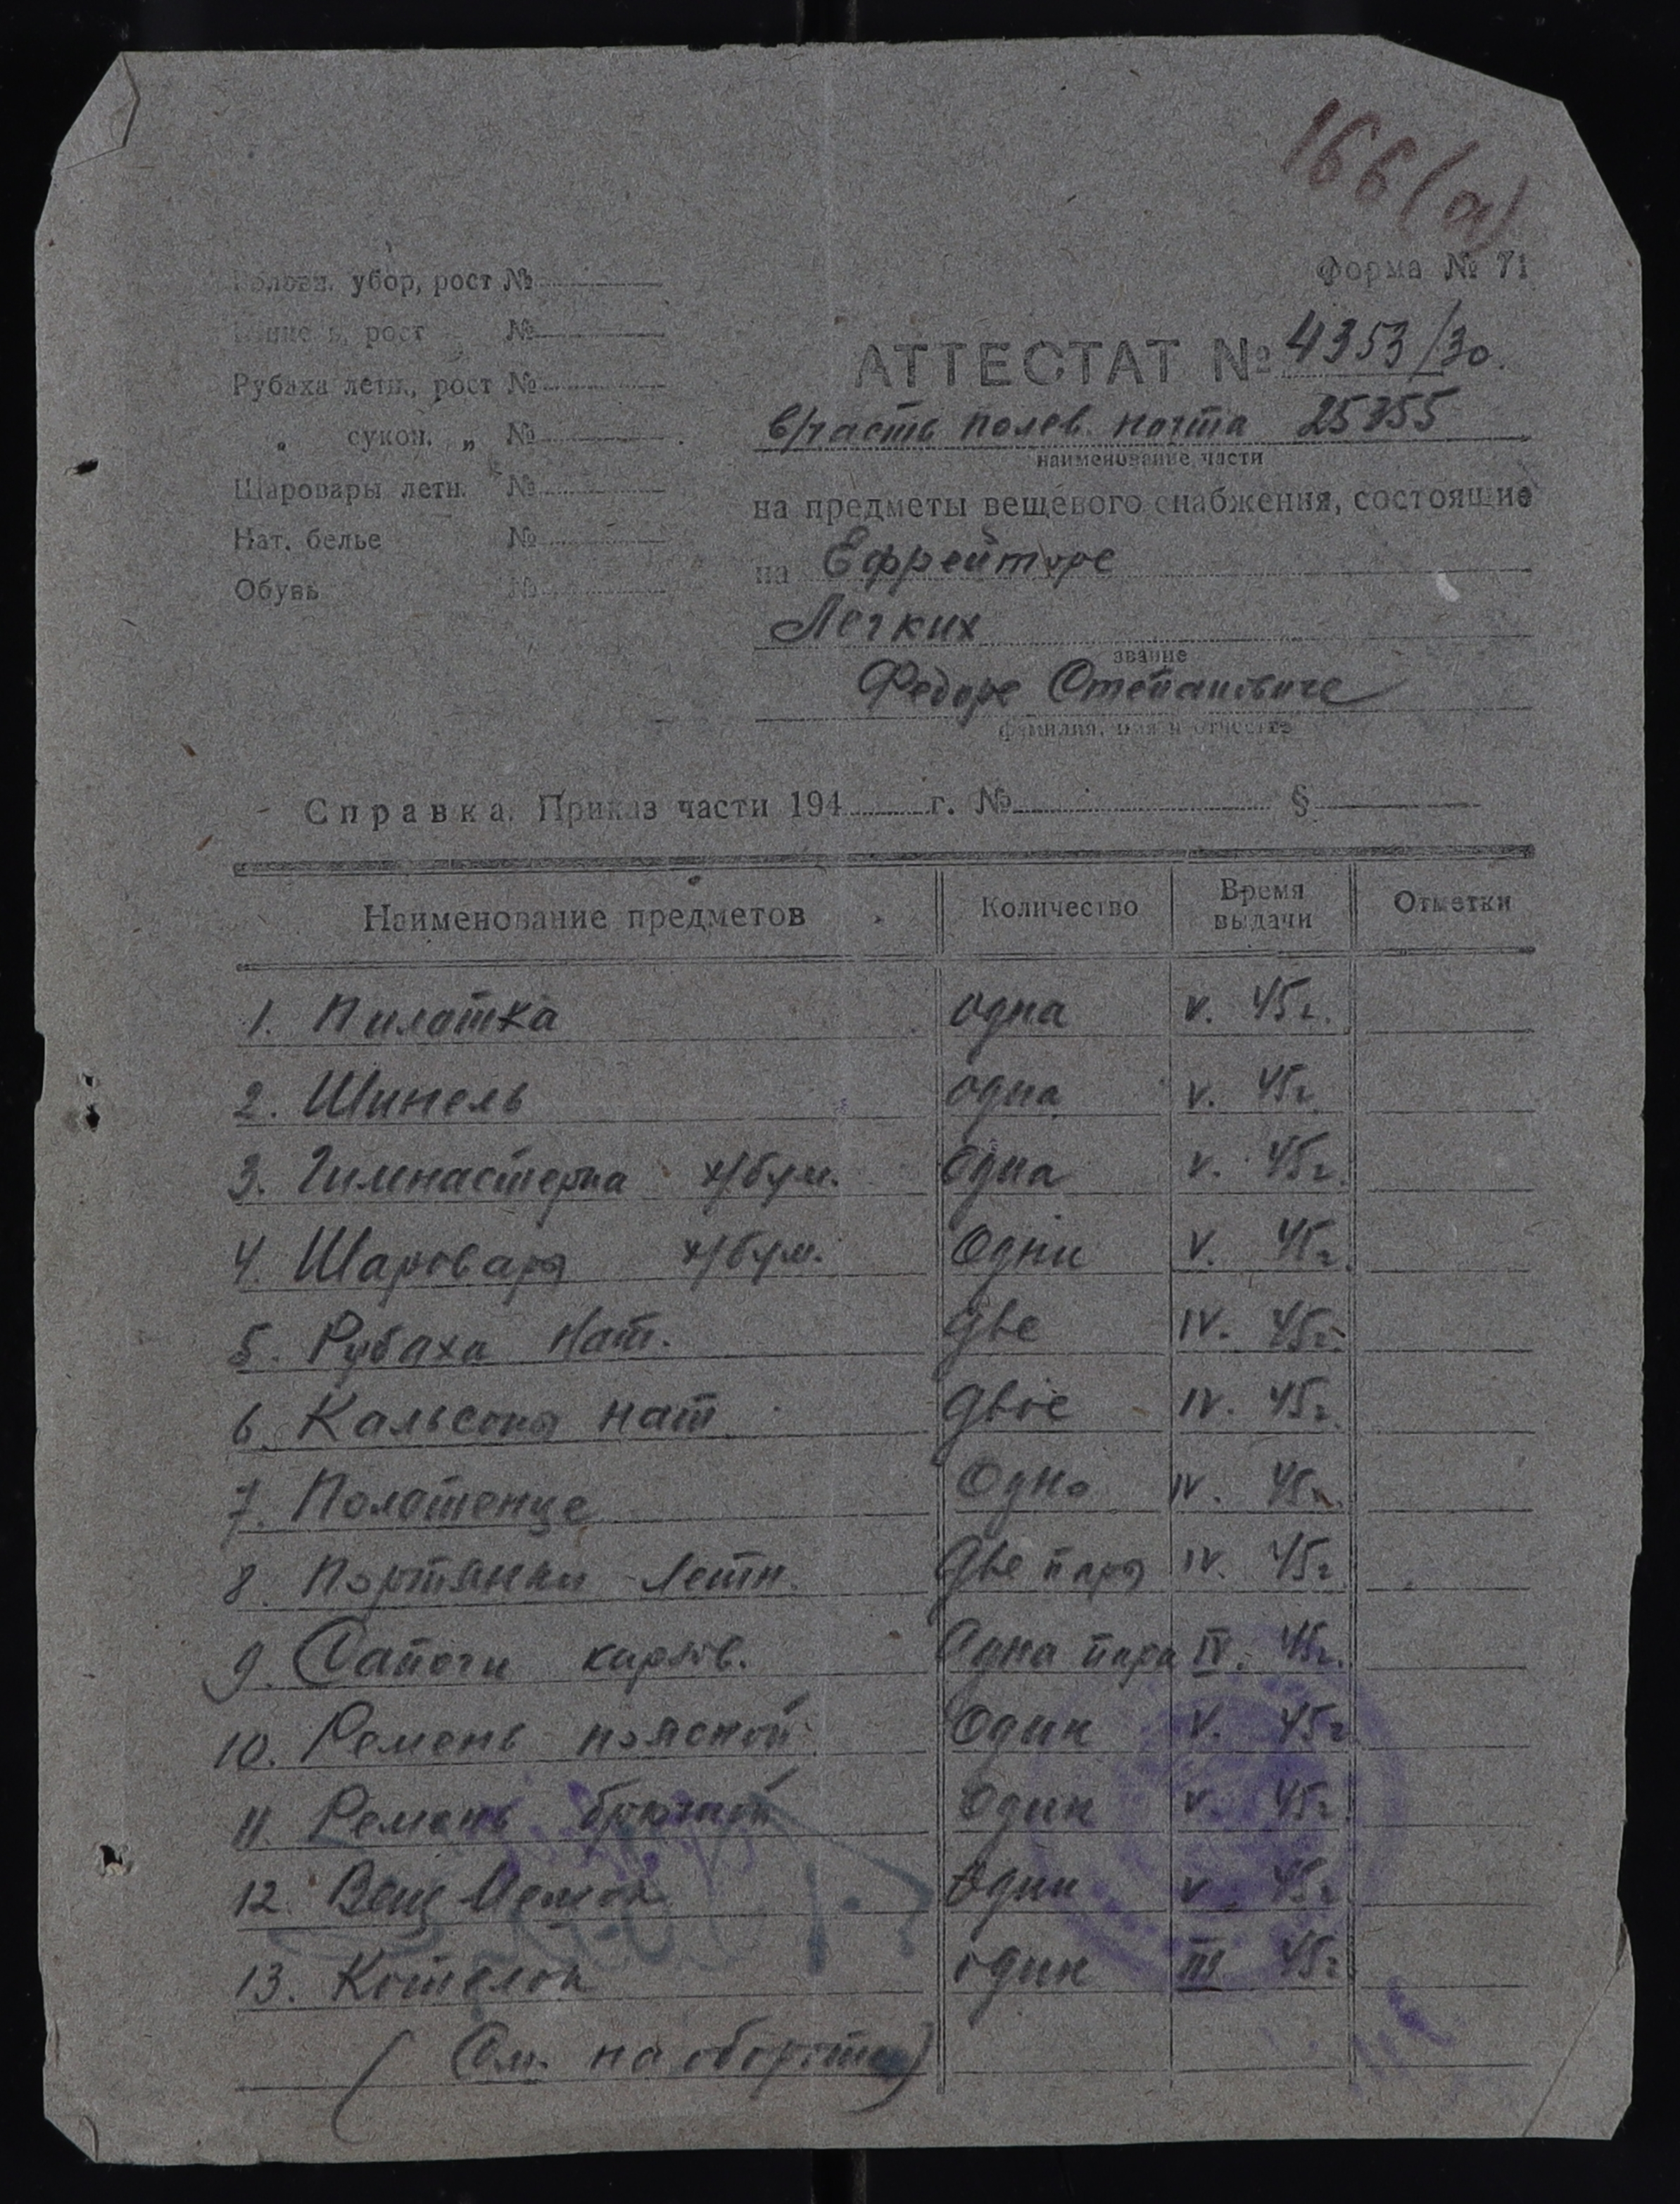 166(а)
Форма № 71
Головн. убор, рост №
Шинель, рост №
Рубаха летн., рост №
„ сукон. „ №
Шаровары летн. №
Нат. белье №
Обувь №
АТТЕСТАТ № 4353/30.
в/часть полев. почта 25755
наименование части
на предметы вещевого снабжения, состоящие
на Ефрейторе
Легких
звание
Федоре Степановиче
фамилия, имя и отчество
Справка. Приказ части 194 г. № §
Наименование предметов Количество Время выдачи Отметки
1. Пилотка одна V. 45г.
2. Шинель одна V. 45г.
3. Гимнастерка х/бум. Одна V. 45г.
4. Шаровары х/бум. Одни V. 45г.
5. Рубаха нат. две IV. 45г.
6. Кальсоны нат двое IV. 45г.
7. Полотенце Одно IV. 45г.
8. Портянки летн. две пары IV. 45г
9. Сапоги кирзов. Одна пара IV. 45г.
10. Ремень поясной Один V. 45г
11. Ремень брючной Один V. 45г.
12. Вещ Мешок Один V. 45г.
13. Котелок один III 45г
( См. на обороте )